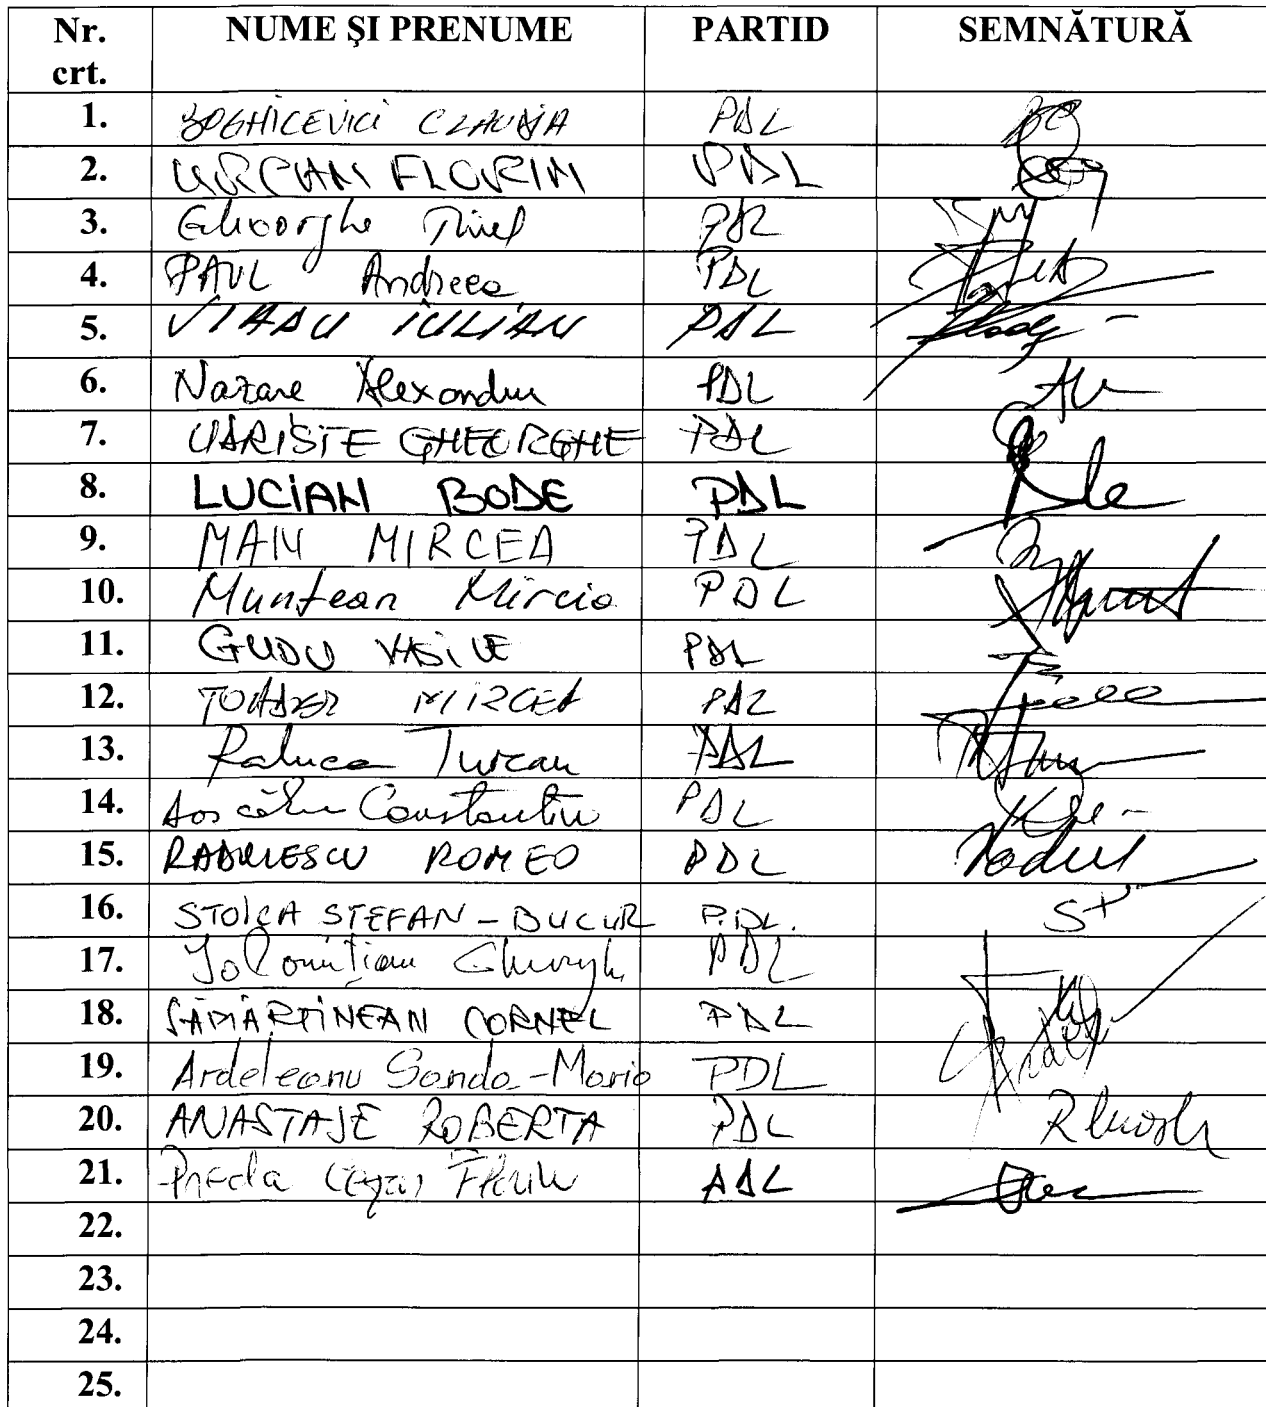 Nr. crt. NUME ŞI PRENUME PARTID SEMNĂTURĂ
1. BOGHICEVICI CLAUDIA PDL
2. URCAN FLORIN PDL
3. Gheorghe Tinel PDL
4. PAUL Andreea PDL
5. VLADU IULIAN PDL
6. Nazare Alexandru PDL
7. UDRIŞTE GHEORGHE PDL
8. LUCIAN BODE PDL
9. MAN MIRCEA PDL
10. Muntean Mircia PDL
11. GUDU VASILE PDL
12. TOADER MIRCEA PDL
13. Raluca Turcan PDL
14. Dascălu Constantin PDL
15. RADULESCU ROMEO PDL
16. STOICA STEFAN-BUCUR P.D.L.
17. Ialomiţianu Gheorghe PDL
18. SĂMĂRTINEAN CORNEL PDL
19. Ardeleanu Sanda-Maria PDL
20. ANASTASE ROBERTA PDL
21. Preda Cezar Florin PDL
22.
23.
24.
25.